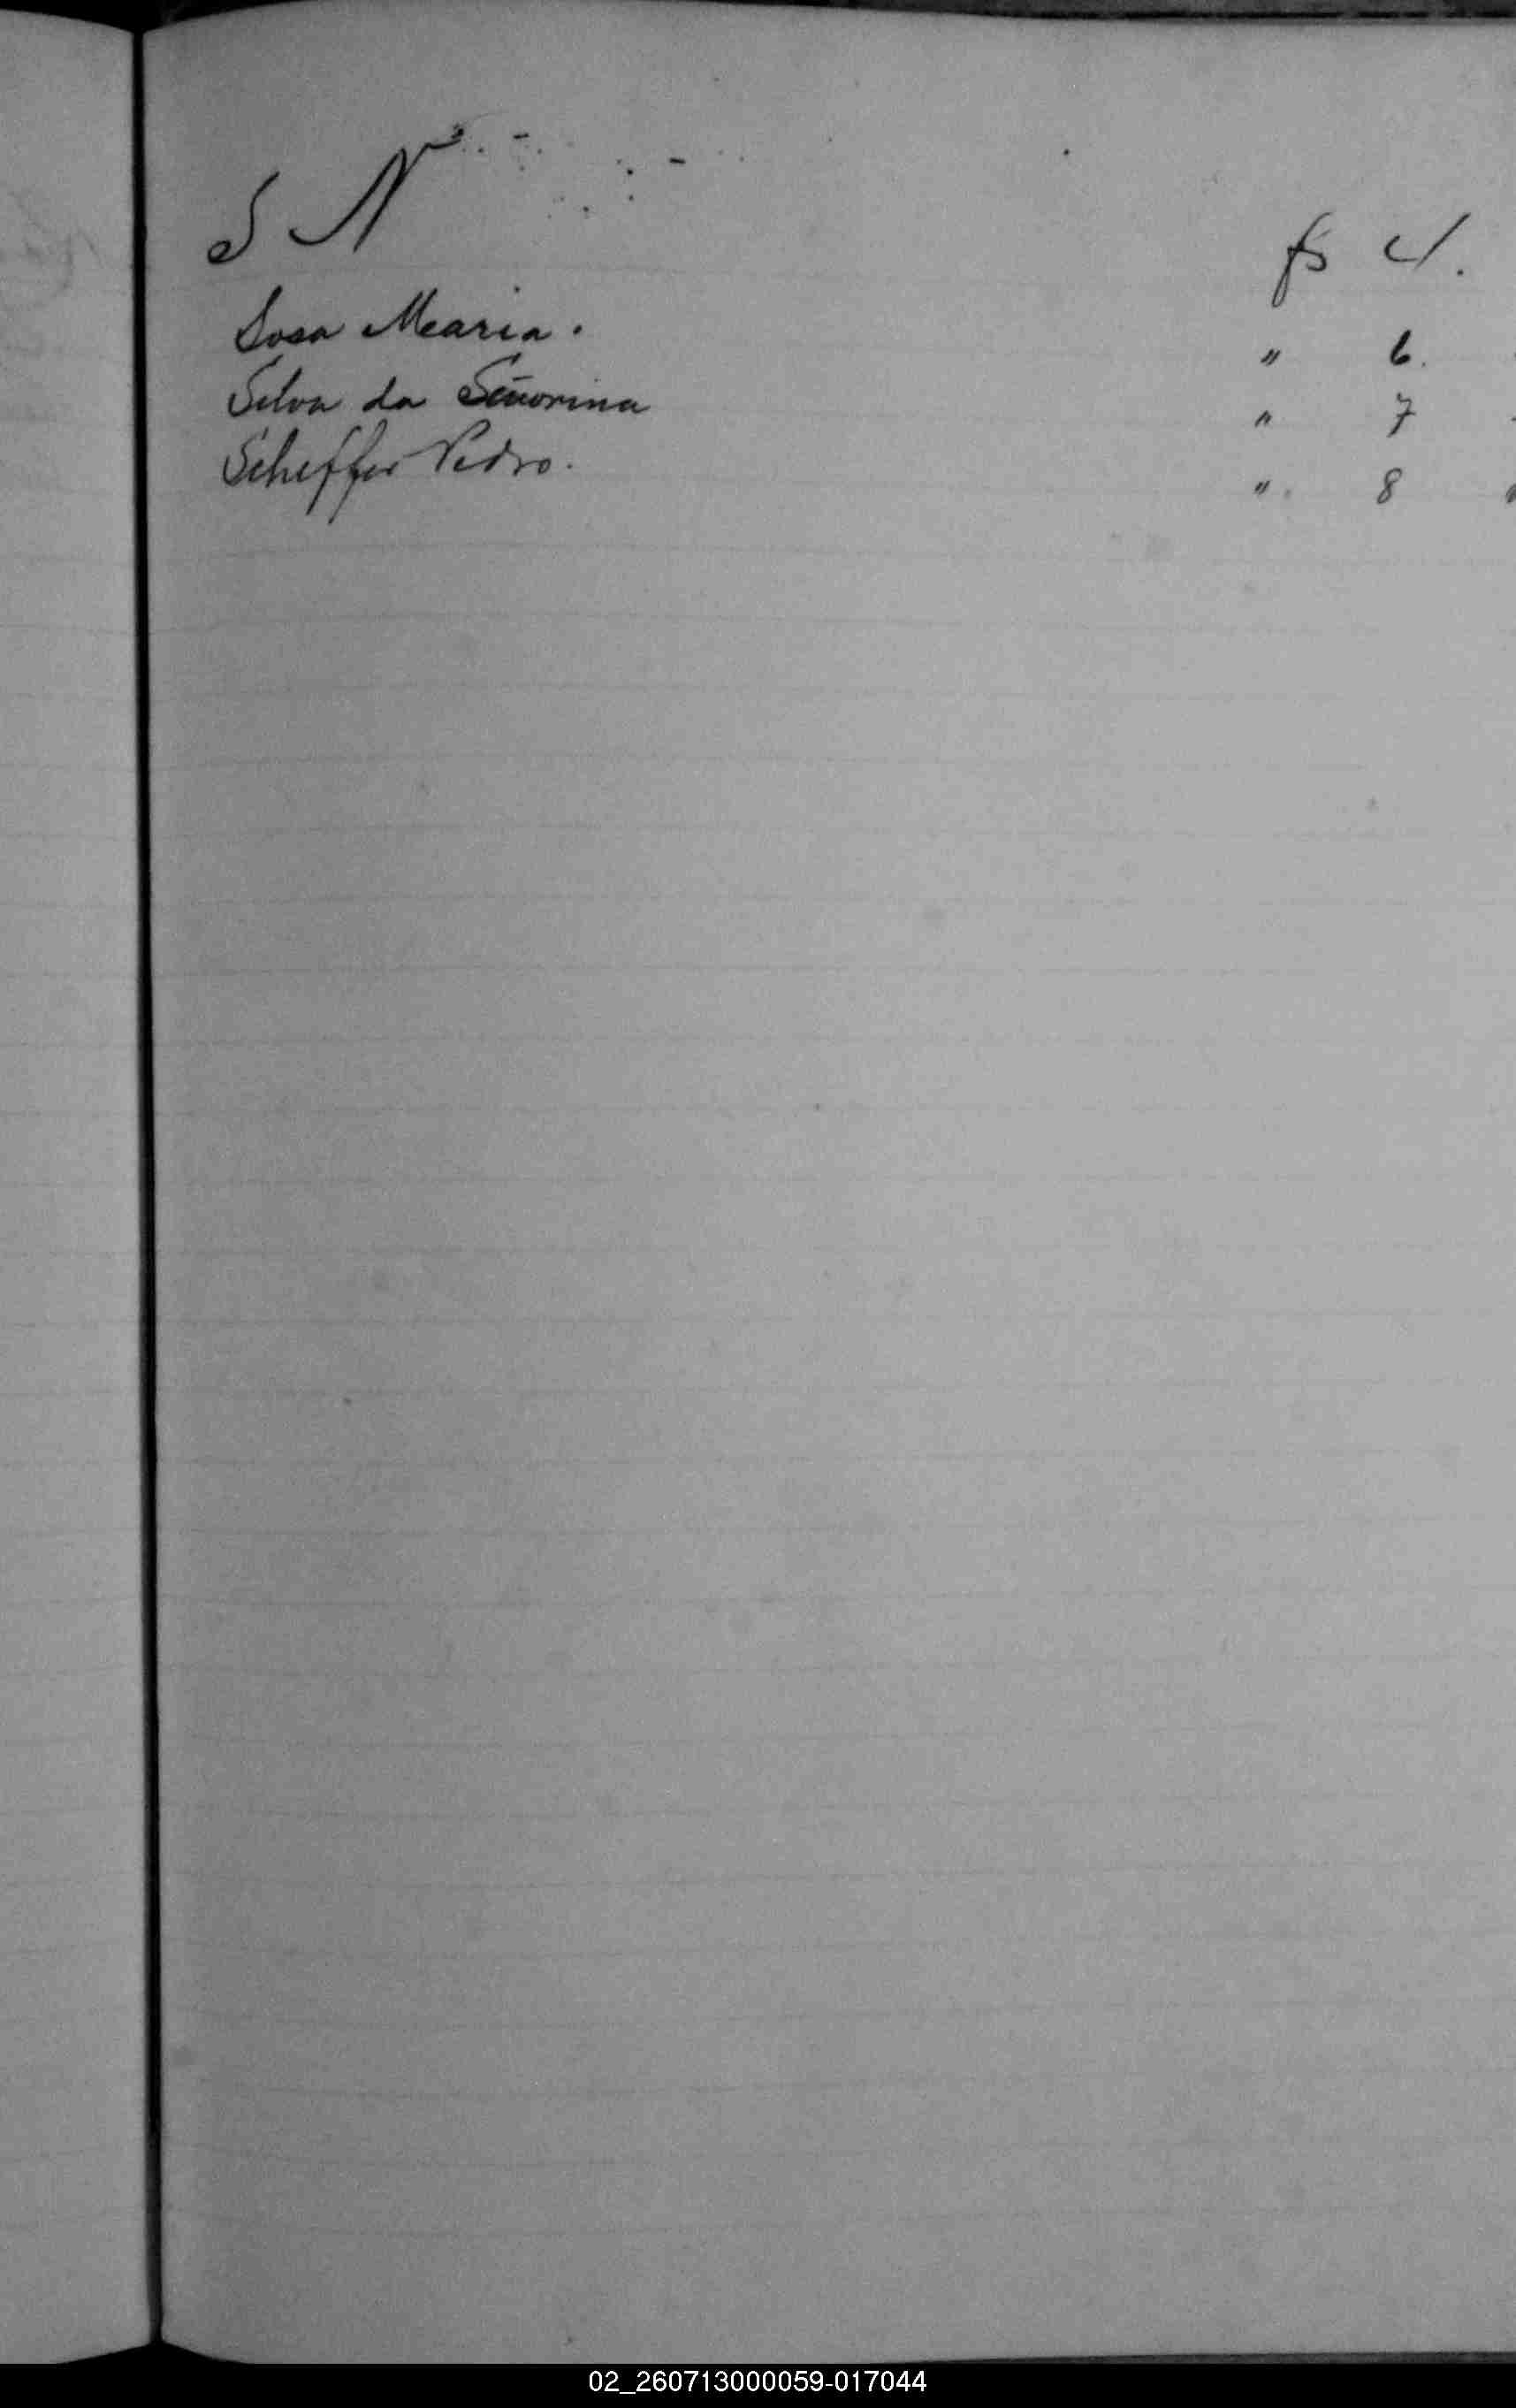 S N
fs
Sosa Maria. " 6.
Silva da Señorina " 7
Scheffer Pedro. " 8
02_260713000059-017044